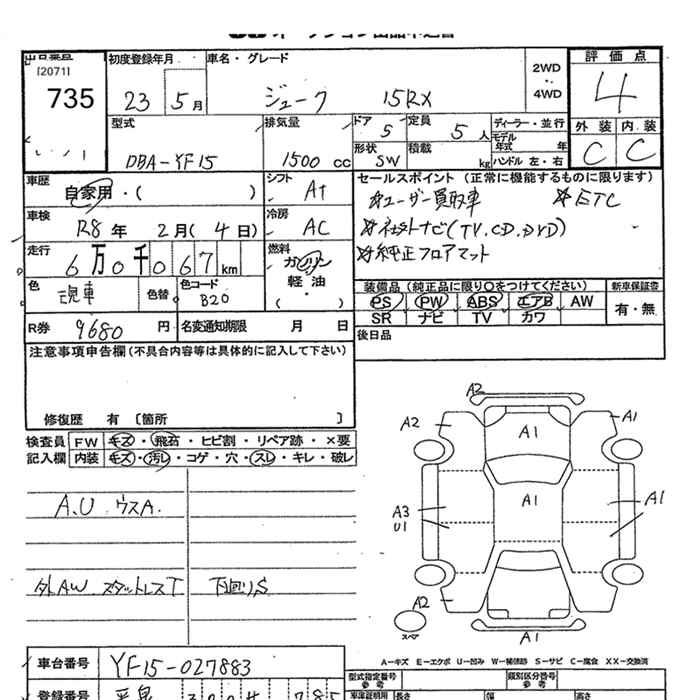 735
初度登録年月 車名・グレード 2WD ・ 4WD 評価点
23 5月 ジューク 15RX 4
型式 排気量 ドア 定員 ディーラー・並行 外装 内装
DBA-YF15 1500cc 5 5人 モデル年式 年 C C
形状 積載 kg ハンドル 左・右
SW
車歴 自家用・( ) シフト At
セールスポイント (正常に機能するものに限ります)
☆ユーザー買取車 ☆ETC
車検 R8年 2月(4日) 冷房 AC
☆社外ナビ(TV,CD,DVD)
走行 6万0千067km 燃料 ガソリン・軽油・( )
☆純正フロアマット
色 黒車 色替 色コード B20
装備品 (純正品に限り○をつけてください) 新車保証書
PS PW ABS エアB AW 有・無
SR ナビ TV カワ
R券 9680円 名変通知期限 月 日
後日品
注意事項申告欄(不具合内容等は具体的に記入して下さい)
修復歴 有 〔箇所 〕
検査員 FW キズ・飛石・ヒビ割・リペア跡・×要
記入欄 内装 キズ・汚れ・コゲ・穴・スレ・キレ・破レ
A.U ウスA.
外AW スタットレスT 下回りS
A2
A2 A1 A1
A3 U1 A1 A1
A2
スペア A1
A-キズ E-エクボ U-凹み W-補修跡 S-サビ C-腐食 XX-交換済
車台番号 YF15-027883
型式指定番号 類別区分番号
登録番号
長さ 幅 高さ